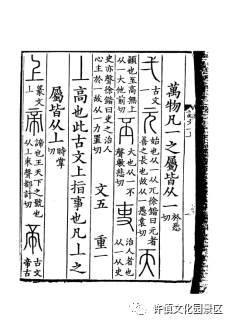 萬物凡一之屬皆从一 於悉切
弌 古文一 元 始也从一从兀徐鍇曰元者善之長也故从一愚袁切 天
顛也至高無上从一大他前切 丕 大也从一不聲敷悲切 吏 治人者也从一从史
史亦聲徐鍇曰吏之治人心主於一故从一力置切
文五 重一
丄 高也此古文上指事也凡丄之
屬皆从丄 時掌切
上 篆文丄 帝 諦也王天下之號也从丄朿聲都計切 帝 古文帝古
许慎文化园景区